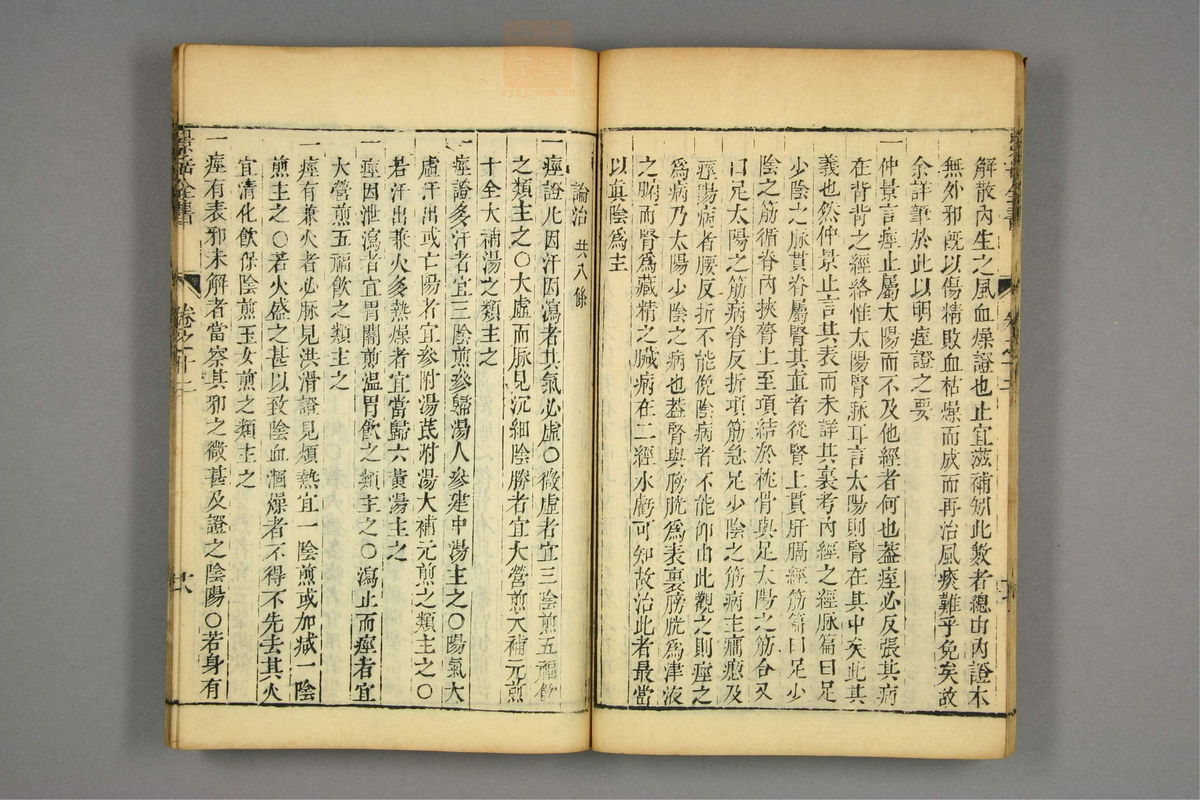 解散內生之風血燥證也止宜滋補如此數者總由內證本
無外邪既以傷精敗血枯燥而成而再治風痰難乎免矣故
余詳筆於此以明痙證之要
一仲景言痙止屬太陽而不及他經者何也蓋痙必反張其病
在背背之經絡惟太陽腎脉耳言太陽則腎在其中矣此其
義也然仲景止言其表而未詳其裏考內經之經脉篇曰足
少陰之脉貫脊屬腎其直者從腎上貫肝膈經筋篇曰足少
陰之筋循脊內挾膂上至項結於枕骨與足太陽之筋合又
曰足太陽之筋病脊反折項筋急足少陰之筋病主癇瘛及
痙陽病者腰反折不能俛陰病者不能仰由此觀之則痙之
爲病乃太陽少陰之病也蓋腎與膀胱爲表裏膀胱爲津液
之腑而腎爲藏精之臟病在二經水虧可知故治此者最當
以眞陰爲主
論治 共八條
一痙證凡因汗因瀉者其氣必虛○微虛者宜三陰煎五福飲
之類主之○大虛而脉見沉細陰勝者宜大營煎大補元煎
十全大補湯之類主之
一痙證多汗者宜三陰煎參歸湯人參建中湯主之○陽氣大
虛汗出或亡陽者宜參附湯芪附湯大補元煎之類主之○
若汗出兼火多熱燥者宜當歸六黃湯主之
一痙因泄瀉者宜胃關煎溫胃飲之類主之○瀉止而痙者宜
大營煎五福飲之類主之
一痙有兼火者必脉見洪滑證見煩熱宜一陰煎或加減一陰
煎主之○若火盛之甚以致陰血涸燥者不得不先去其火
宜清化飲保陰煎玉女煎之類主之
一痙有表邪未解者當察其邪之微甚及證之陰陽○若身有
景岳全書
卷之十二
zysj.com.cn